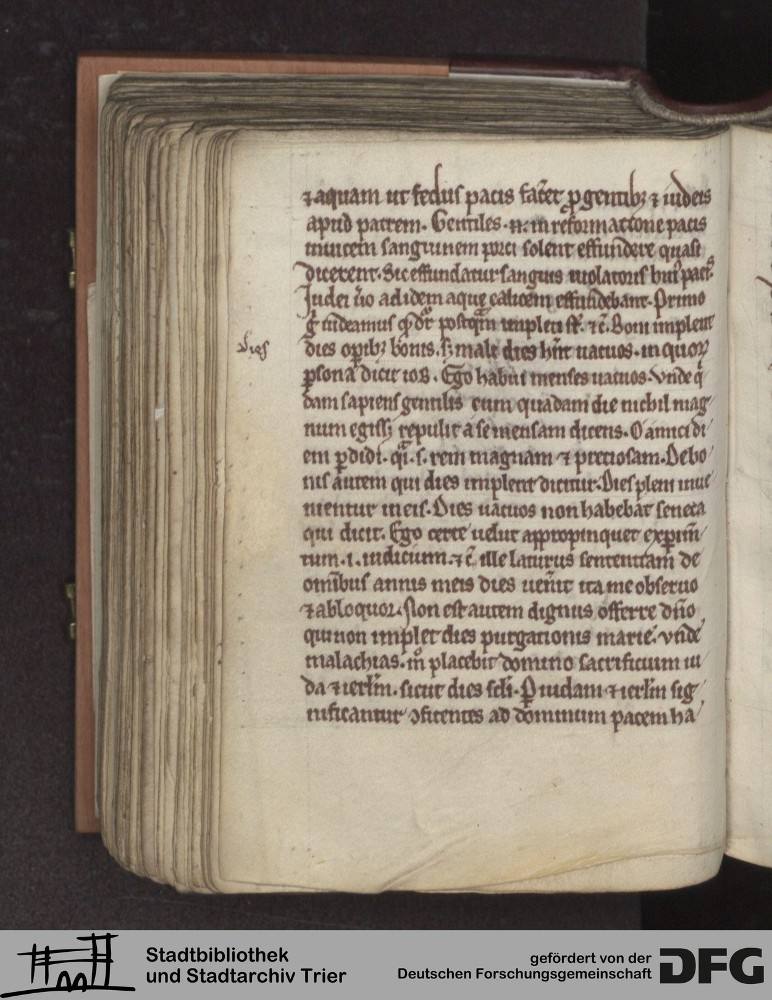 ⁊ aquam ut fedus pacis fac̄et ꝓ gentibꝫ ⁊ iudeis
apud patrem. Gentiles .n. in reformatione pacis
inuicem sanguinem porci solent effundere quasi
dicerent. Sic effundatur sanguis uiolatoris hui᷒ pacis.
Iudei ũo ad idem aque calicem effundebant. Primo
g̊ uideamus qd̄ dr̄ postq̄m impleti st̄. ⁊c̄. Boni implent
dies
dies oꝑibꝫ bonis. sꝫ mali dies hn̄t uacuos. in quoꝝ
ꝑsona dicit iob. Ego habui menses uacuos. Vnde q̄
dam sapiens gentilis cum quadam die nichil mag
num egissꝫ repulit a se mensam dicens. O amici di
em ꝑdidi. q̄i .s. rem magnam ⁊ preciosam. De bo
nis autem qui dies implent dicitur. Dies pleni inue
nientur in eis. Dies uacuos non habebat seneca
qui dicit. Ego certe uelut appropinquet exꝑim̄
tum .i. iudicium. ⁊c̄ ille laturus sententiam de
omībus annis meis dies uen̄it ita me obseruo
⁊ alloquor. Non est autem dignus offerre dn̄o
qui non implet dies purgationis marie. Vnde
malachias. in̄ placebit domino sacrificium iu
da ⁊ ierl̄m. sicut dies scl̄i. Ꝑ iudam ⁊ ierl̄m sig
nificantur ꝯfitentes ad dominum pacem ha
Stadtbibliothek
und Stadtarchiv Trier
gefördert von der
Deutschen Forschungsgemeinschaft
DFG